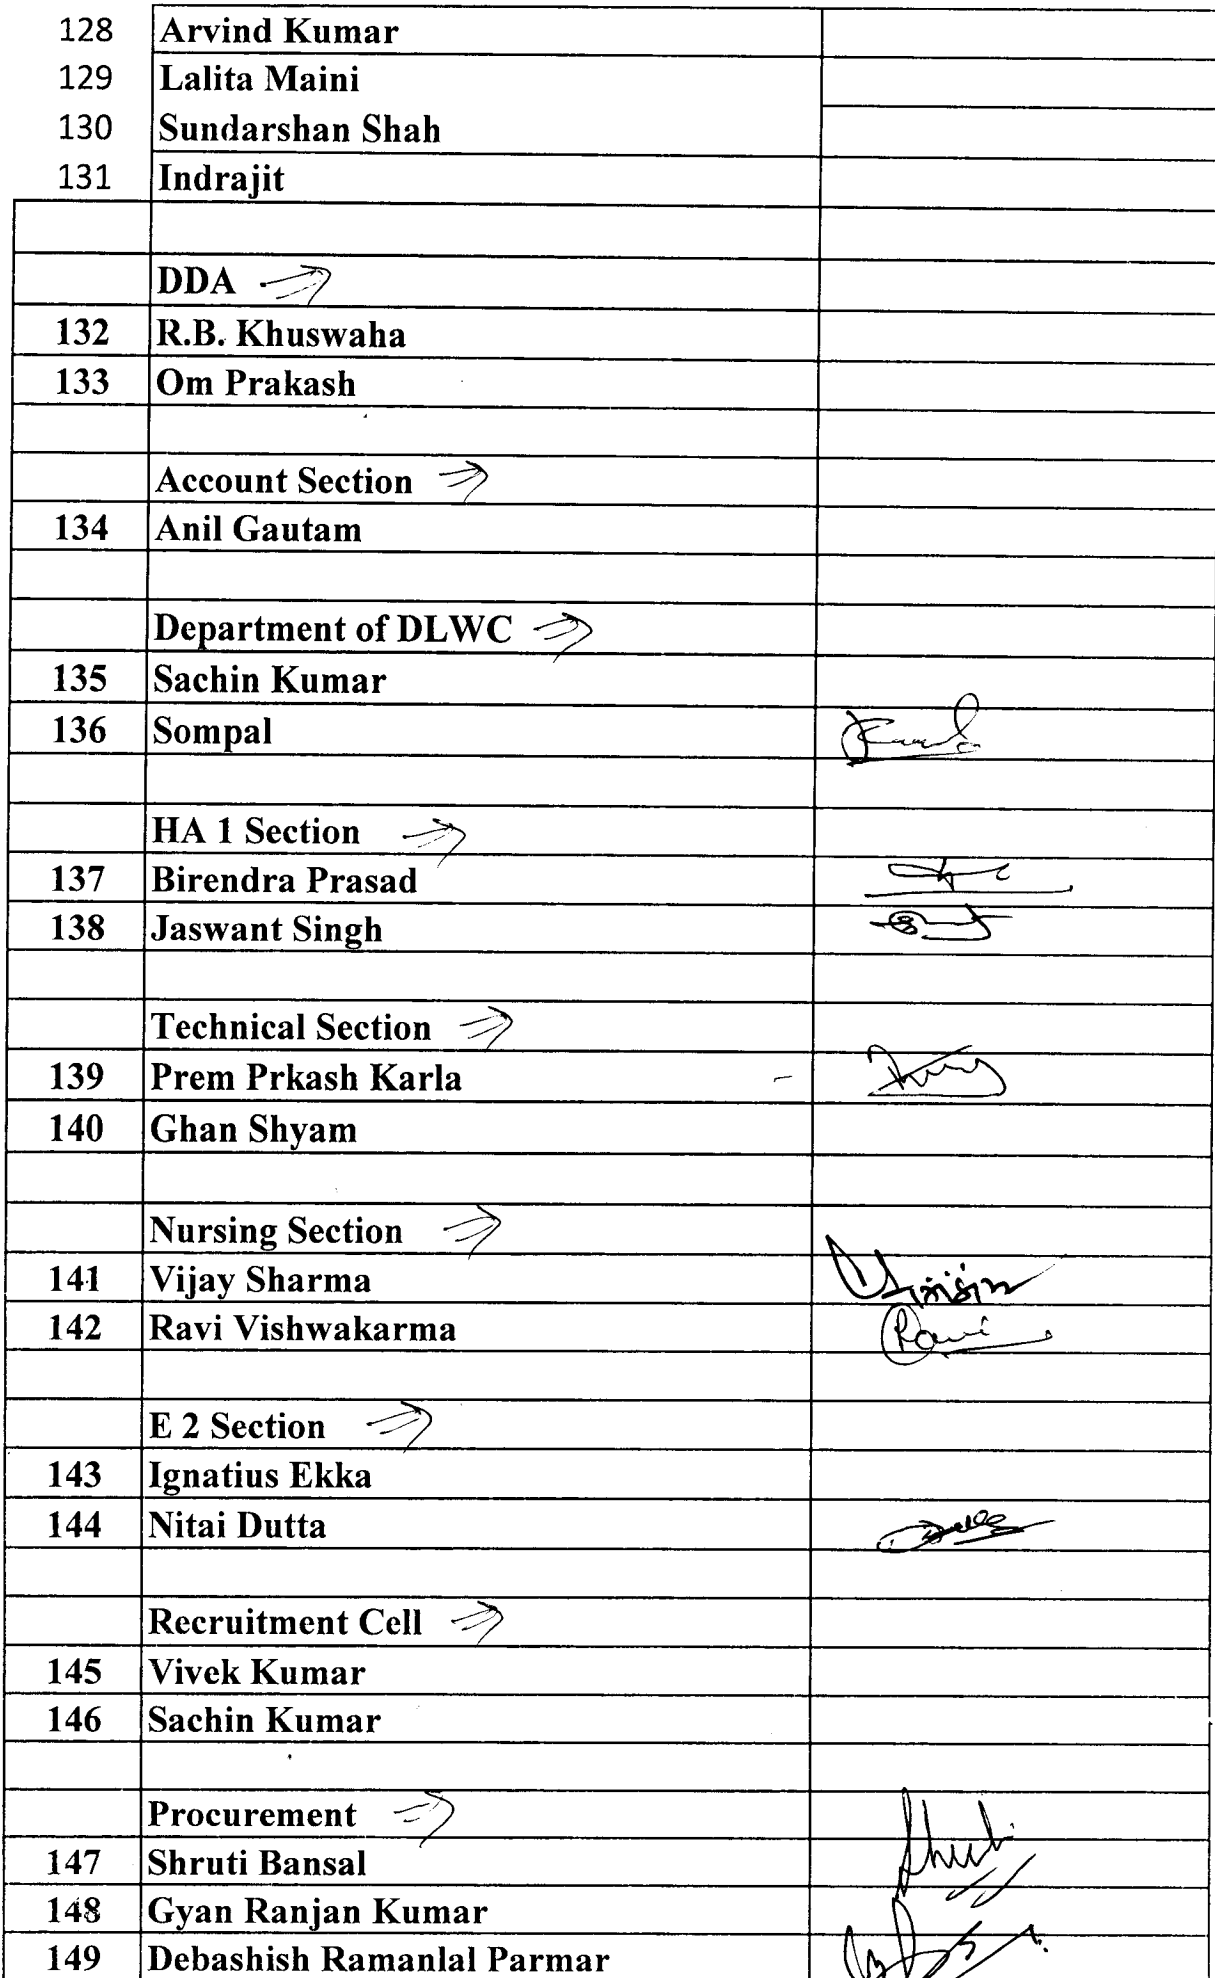 128 Arvind Kumar
129 Lalita Maini
130 Sundarshan Shah
131 Indrajit
DDA
132 R.B. Khuswaha
133 Om Prakash
Account Section
134 Anil Gautam
Department of DLWC
135 Sachin Kumar
136 Sompal
HA 1 Section
137 Birendra Prasad
138 Jaswant Singh
Technical Section
139 Prem Prkash Karla
140 Ghan Shyam
Nursing Section
141 Vijay Sharma
142 Ravi Vishwakarma Ravi
E 2 Section
143 Ignatius Ekka
144 Nitai Dutta
Recruitment Cell
145 Vivek Kumar
146 Sachin Kumar
Procurement
147 Shruti Bansal Shruti
148 Gyan Ranjan Kumar
149 Debashish Ramanlal Parmar